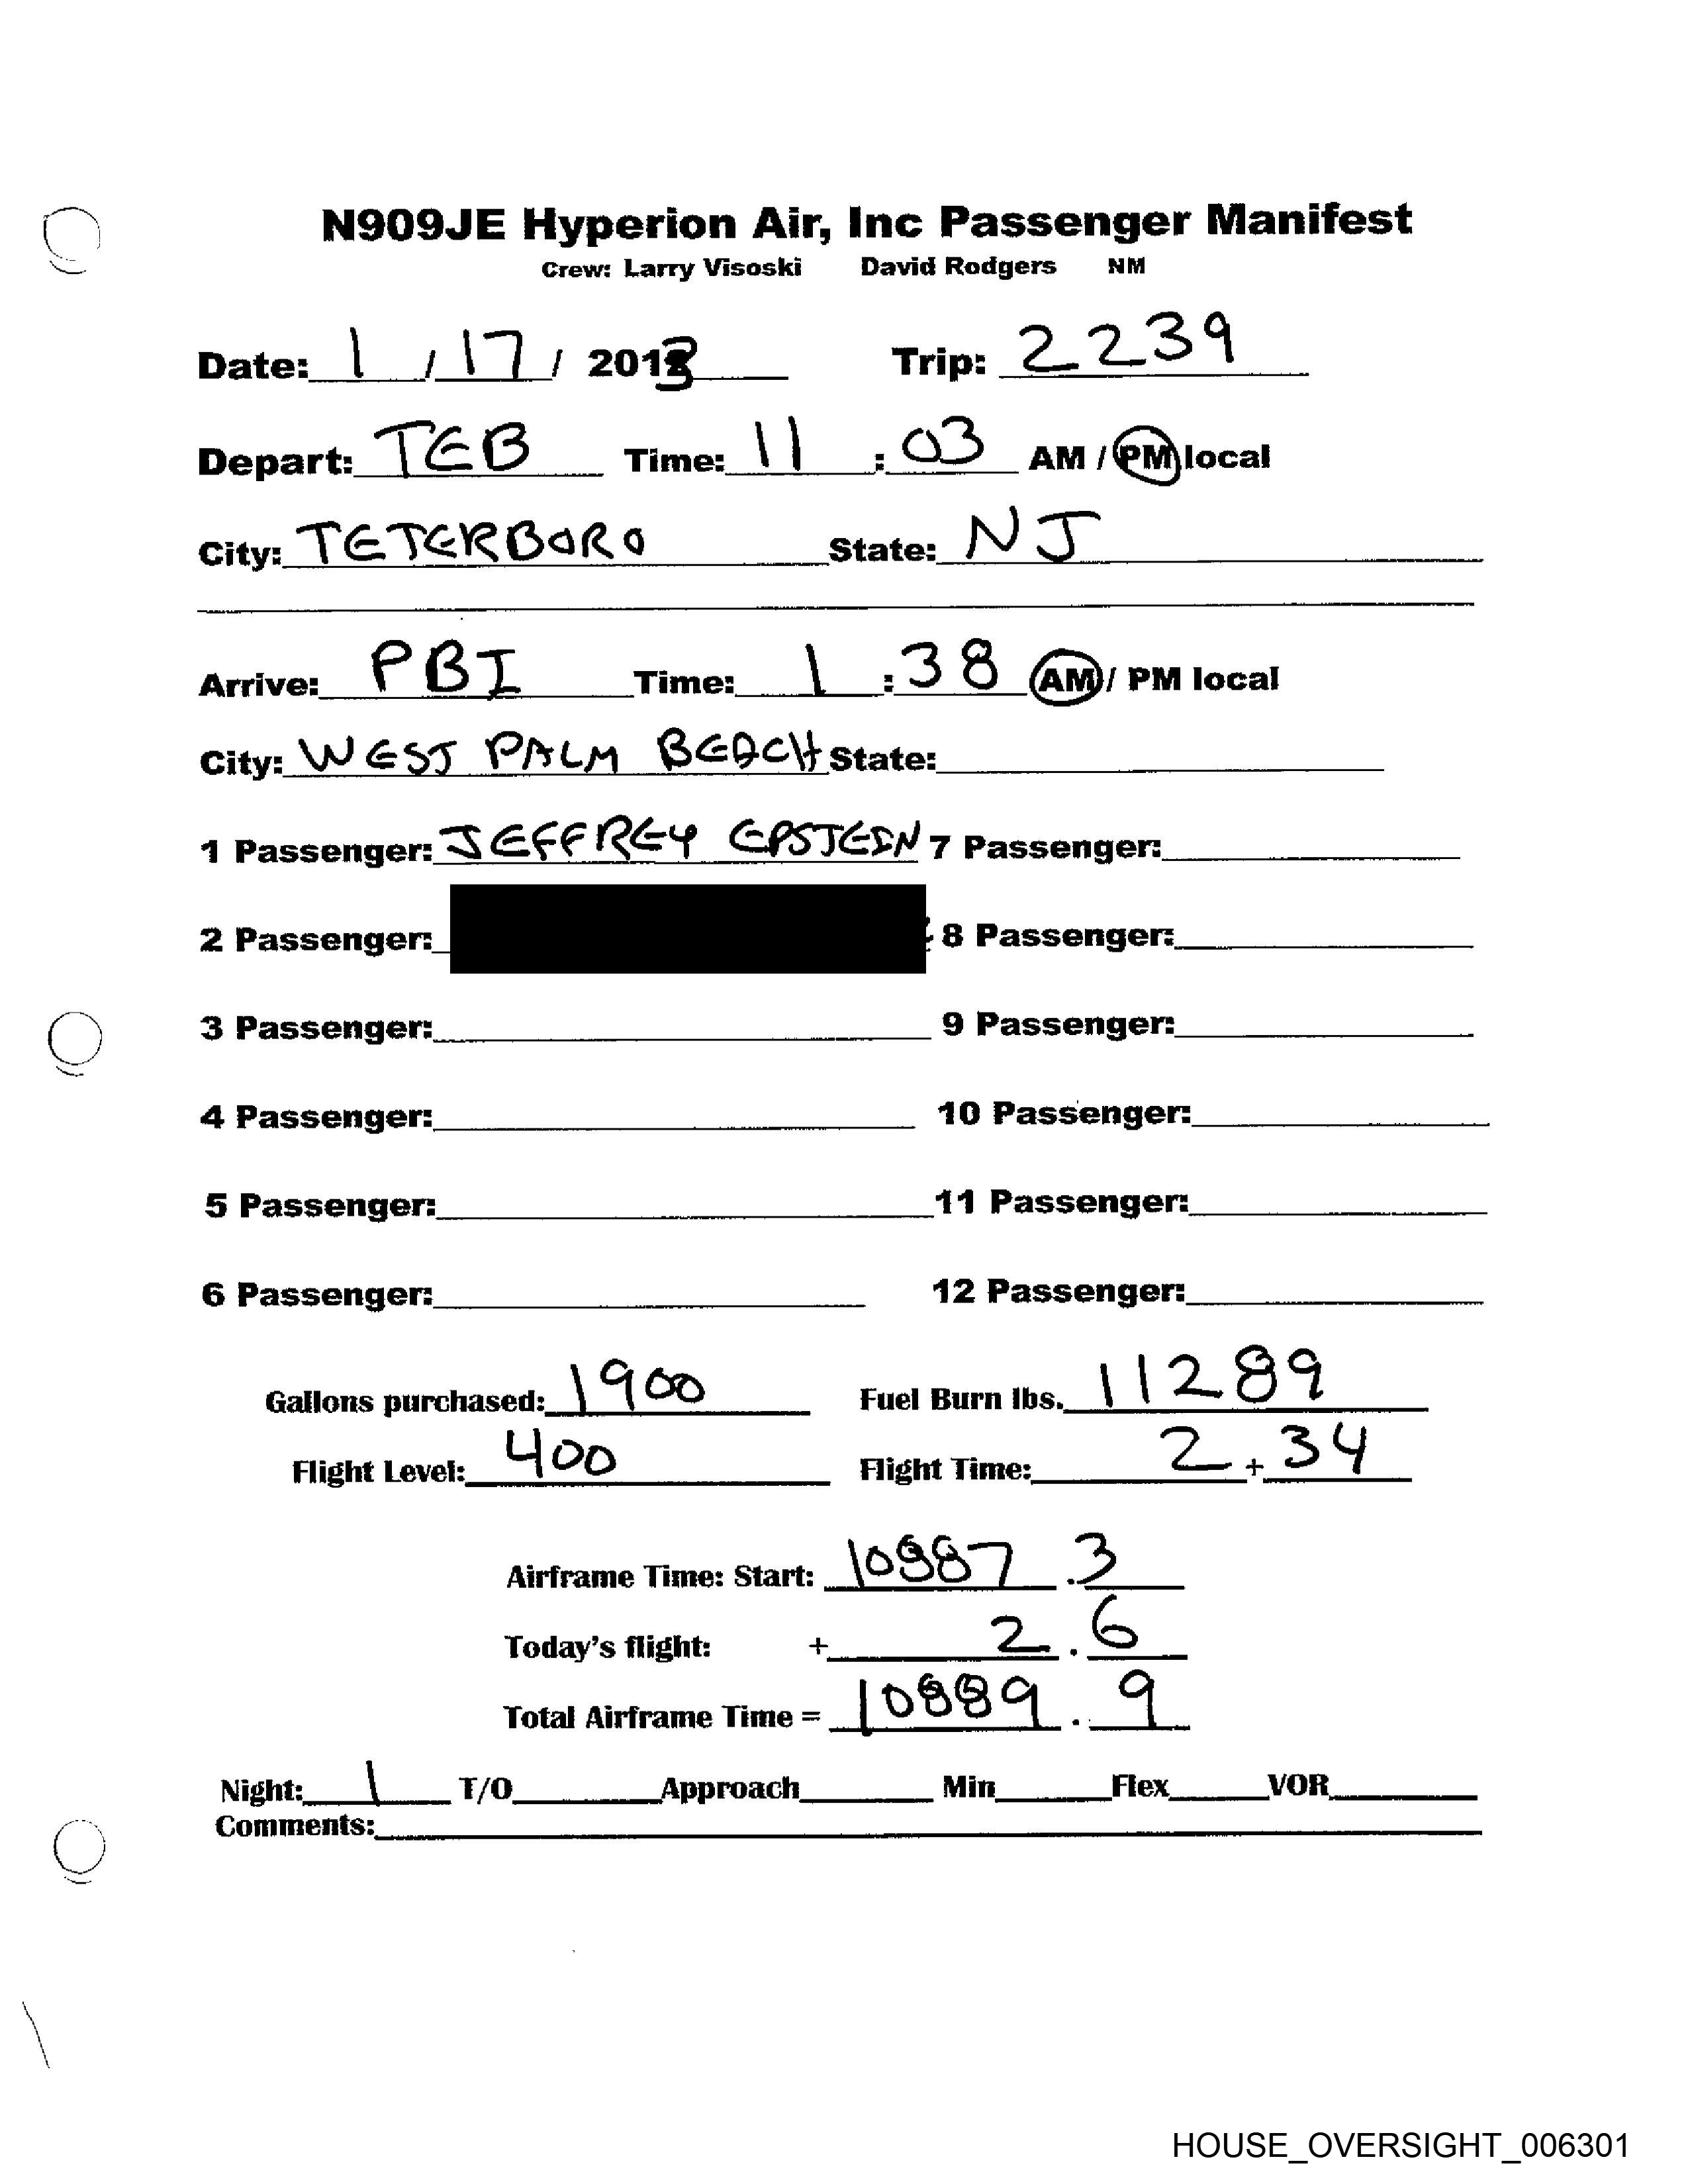 N909JE Hyperion Air, Inc Passenger Manifest
Crew: Larry Visoski David Rodgers NM
Date: 1 / 17 / 2013 Trip: 2239
Depart: TEB Time: 11 : 03 AM / PM local
City: TETERBORO State: NJ
Arrive: PBI Time: 1 : 38 AM / PM local
City: WEST PALM BEACH State:
1 Passenger: JEFFREY EPSTEIN 7 Passenger:
2 Passenger: 8 Passenger:
3 Passenger: 9 Passenger:
4 Passenger: 10 Passenger:
5 Passenger: 11 Passenger:
6 Passenger: 12 Passenger:
Gallons purchased: 1900 Fuel Burn lbs. 11289
Flight Level: 400 Flight Time: 2 + 34
Airframe Time: Start: 10887 .3
Today's flight: + 2 . 6
Total Airframe Time = 10889 . 9
Night: 1 T/O Approach Min Flex VOR
Comments:
HOUSE_OVERSIGHT_006301